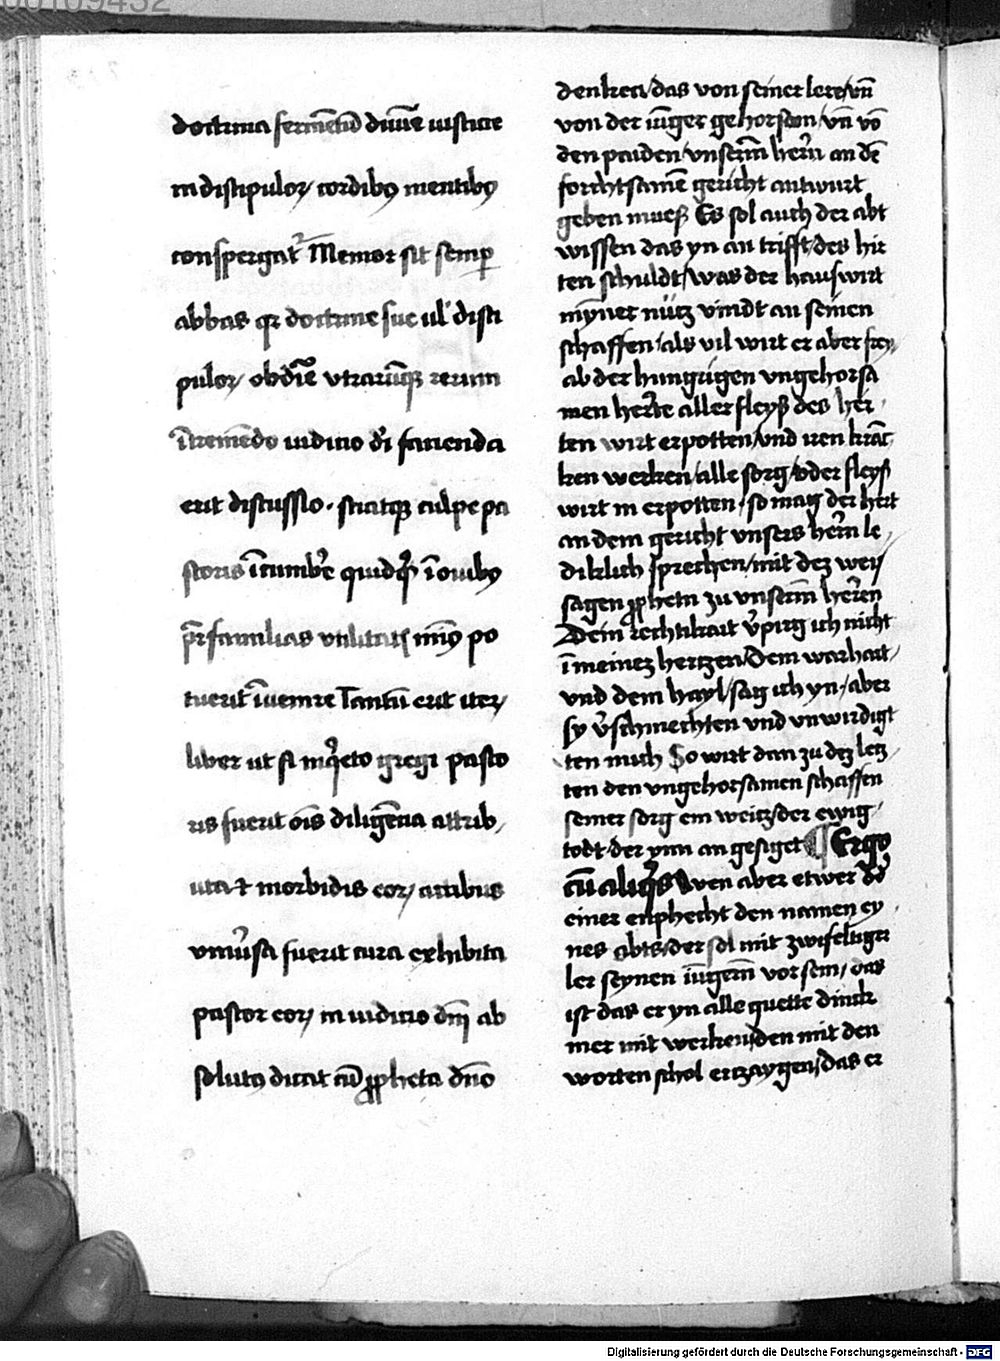 doctrina fermētū diuīe iusticie
in discipuloꝝ cordibꝯ mentibꝯ
conspergat᷑ Memor sit semꝑ
abbas qꝛ doctrine sue ul' disci
puloꝝ obdīe vtrarūqꝫ rerum
ī tremēdo iudicio dī facienda
erit discussio · sciatqꝫ culpe pa
storis īcumbᷣe quidqͥd ī ouibꝯ
pr̄familias vtilitatis mīꝯ po
tuerit īuenire Tantū erit iteꝝ
liber ut si inqͥeto gregi pasto
ris fuerit oīs diligēcia attrib
uta ⁊ morbidis eoꝝ actibus
vniūsa fuerit cura exhibita
pastor eoꝝ in iudicio dn̄i ab
solutꝯ dicat cū ꝓpheta dn̄o
denken / das von seiner lere / vn̄
von der iūger gehorsam / vn̄ vō
den paiden / vnserm̄ hern̄ an dē
forchtsamē gericht antwurt
geben mueß Es sol auch der abt
wissen das yn an trifft / des hir
ten schuldt / was der hauswirt
myner nütz vindt an seinen
schaffen / als vil wirt er aber frey
ab der hungrigen vngehorsa
men herte aller fleyß des her
ten wirt erpotten / vnd iren krāc
ken werken / alle sorg / oder fleyß
wirt in erpotten / so mag der hert
an dem gericht vnsers hern̄ le
diklich sprechen / mit dez wey
sagen ꝓphetn zu vnserm̄ herren
Dein rechtikait v̄pirg ich nicht
ī meinez hertzen / Dem warhait
vnd dem hayl / sag ich yn / aber
sy v̄schmechten vnd vnwirdigt
ten mich So wirt dan zu dez letz
ten den vngehorsamen schaffen
seiner sorg ein weitz / der ewig
todt / der ynn an gesiget ¶ Ergo
cū aliqͥs Wen aber etwer od̄
einer enphecht den namen ey
nes abts / der sol mit zwifeltiger
ler seynen iūgern̄ vor sein / das
ist das er yn alle guette dinck
mer mit werken / den mit den
worten schol ertzaygen / das er
Digitalisierung gefördert durch die Deutsche Forschungsgemeinschaft - DFG